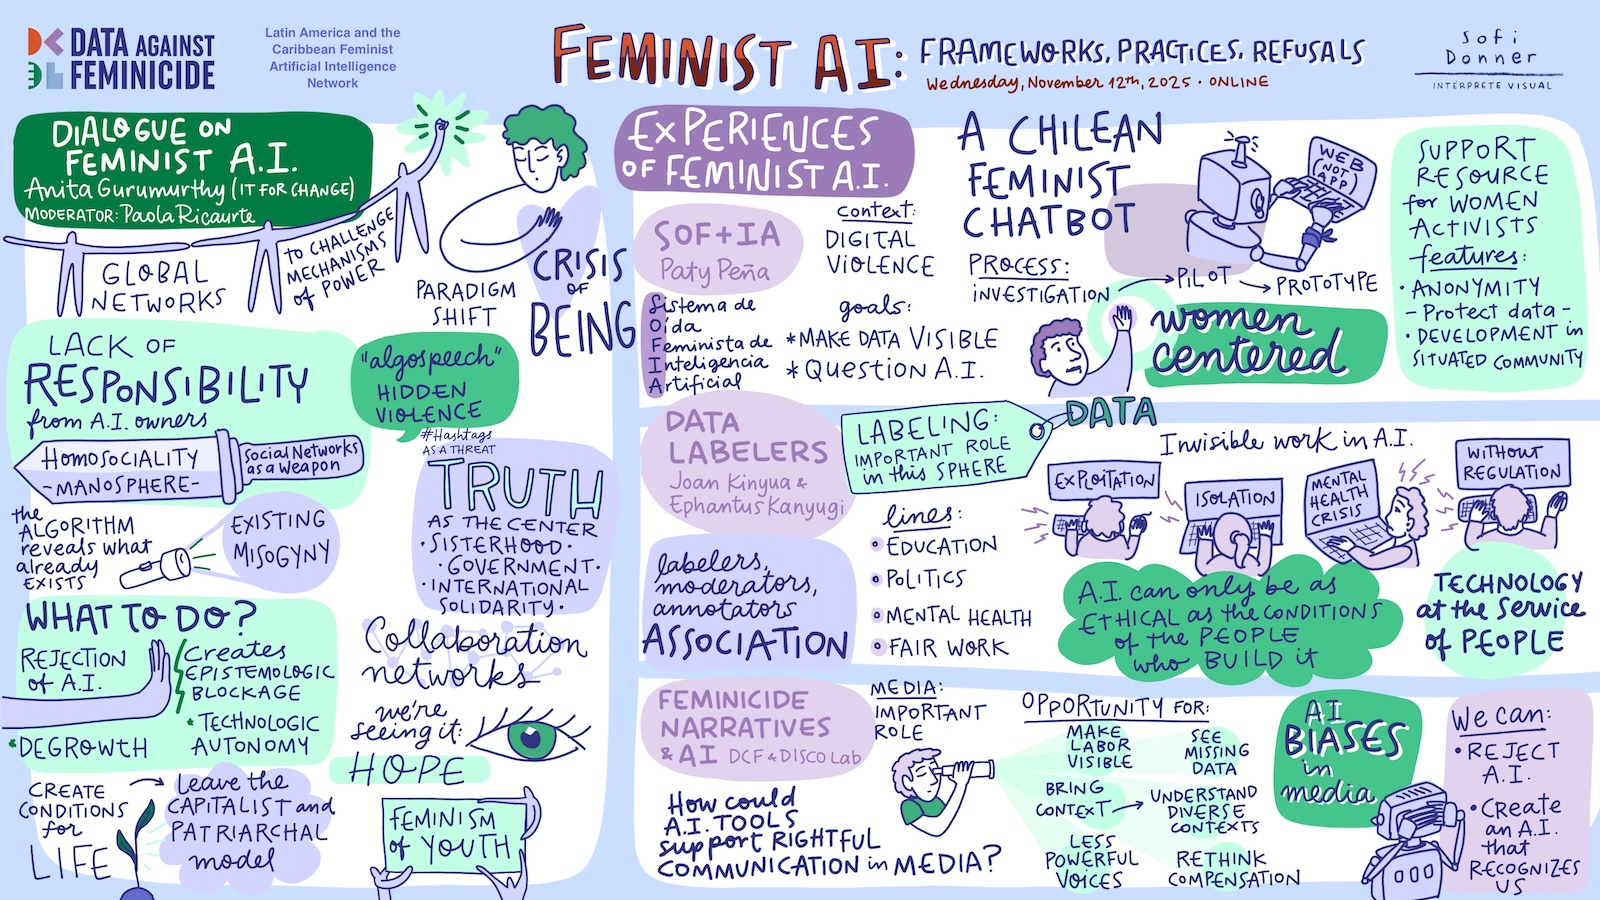 DATA AGAINST
FEMINICIDE
Latin America and the
Caribbean Feminist
Artificial Intelligence
Network
FEMINIST AI: FRAMEWORKS, PRACTICES, REFUSALS
Wednesday, November 12th, 2025 · ONLINE
Sofi
Donner
INTÉRPRETE VISUAL
DIALOGUE ON
FEMINIST A.I.
Anita Gurumurthy (IT FOR CHANGE)
MODERATOR: Paola Ricaurte
GLOBAL
NETWORKS
TO CHALLENGE
MECHANISMS
of POWER
PARADIGM
SHIFT
CRISIS
OF
BEING
LACK OF
RESPONSIBILITY
from A.I. owners
HOMOSOCIALITY
-MANOSPHERE-
Social Networks
as a Weapon
"algospeech"
HIDDEN
VIOLENCE
#Hashtags
AS A THREAT
the
ALGORITHM
reveals what
already
EXISTS
EXISTING
MISOGYNY
TRUTH
AS THE CENTER
· SISTERHOOD ·
· GOVERNMENT ·
· INTERNATIONAL
SOLIDARITY ·
WHAT TO DO?
REJECTION
of A.I.
Creates
EPISTEMOLOGIC
BLOCKAGE
* DEGROWTH
* TECHNOLOGIC
AUTONOMY
Collaboration
networks
we're
seeing it:
HOPE
CREATE
CONDITIONS
for
LIFE
Leave the
CAPITALIST and
PATRIARCHAL
model
FEMINISM
of YOUTH
EXPERIENCES
OF FEMINIST A.I.
SOF+IA
Paty Peña
Sistema de
Oída
Feminista de
Inteligencia
Artificial
context:
DIGITAL
VIOLENCE
goals:
* MAKE DATA VISIBLE
* QUESTION A.I.
A CHILEAN
FEMINIST
CHATBOT
WEB
(NOT
APP)
PROCESS:
INVESTIGATION
PILOT
PROTOTYPE
women
centered
SUPPORT
RESOURCE
for WOMEN
ACTIVISTS
features:
· ANONYMITY
- Protect data -
· DEVELOPMENT in
SITUATED COMMUNITY
DATA
LABELERS
Joan Kinyua &
Ephantus Kanyugi
LABELING:
IMPORTANT ROLE
in this SPHERE
DATA
labelers,
moderators,
annotators
ASSOCIATION
lines:
EDUCATION
POLITICS
MENTAL HEALTH
FAIR WORK
Invisible work in A.I.
EXPLOITATION
ISOLATION
MENTAL
HEALTH
CRISIS
WITHOUT
REGULATION
A.I. can only be as
ETHICAL as the CONDITIONS
of the PEOPLE
who BUILD it
TECHNOLOGY
at the service
of PEOPLE
FEMINICIDE
NARRATIVES
& AI DCF & DISCO Lab
MEDIA:
IMPORTANT
ROLE
How could
A.I. TOOLS
support RIGHTFUL
COMMUNICATION in MEDIA?
OPPORTUNITY FOR:
MAKE
LABOR
VISIBLE
SEE
MISSING
DATA
BRING
CONTEXT
UNDERSTAND
DIVERSE
CONTEXTS
LESS
POWERFUL
VOICES
RETHINK
COMPENSATION
AI
BIASES
in
media
We can:
· REJECT
A.I.
· Create
an A.I.
that
RECOGNIZES
US